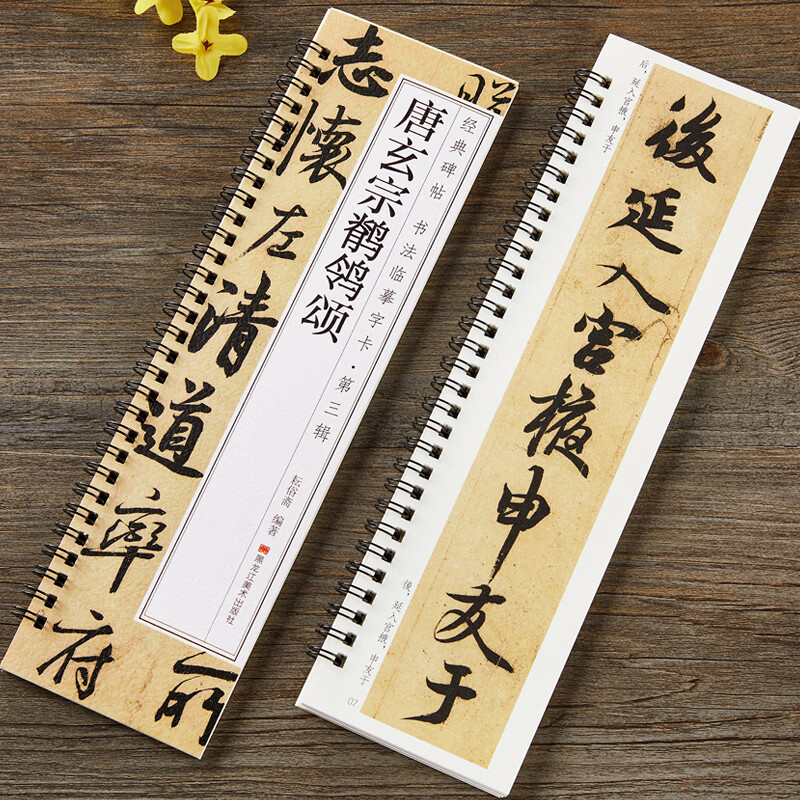 志懷左清道率府
经典碑帖 书法临摹字卡·第三辑
唐玄宗鹡鸰颂
耘俗斋 编著
黑龙江美术出版社
后，延入宫掖，申友于
後延入宮掖申友于
後，延入宮掖，申友于
07